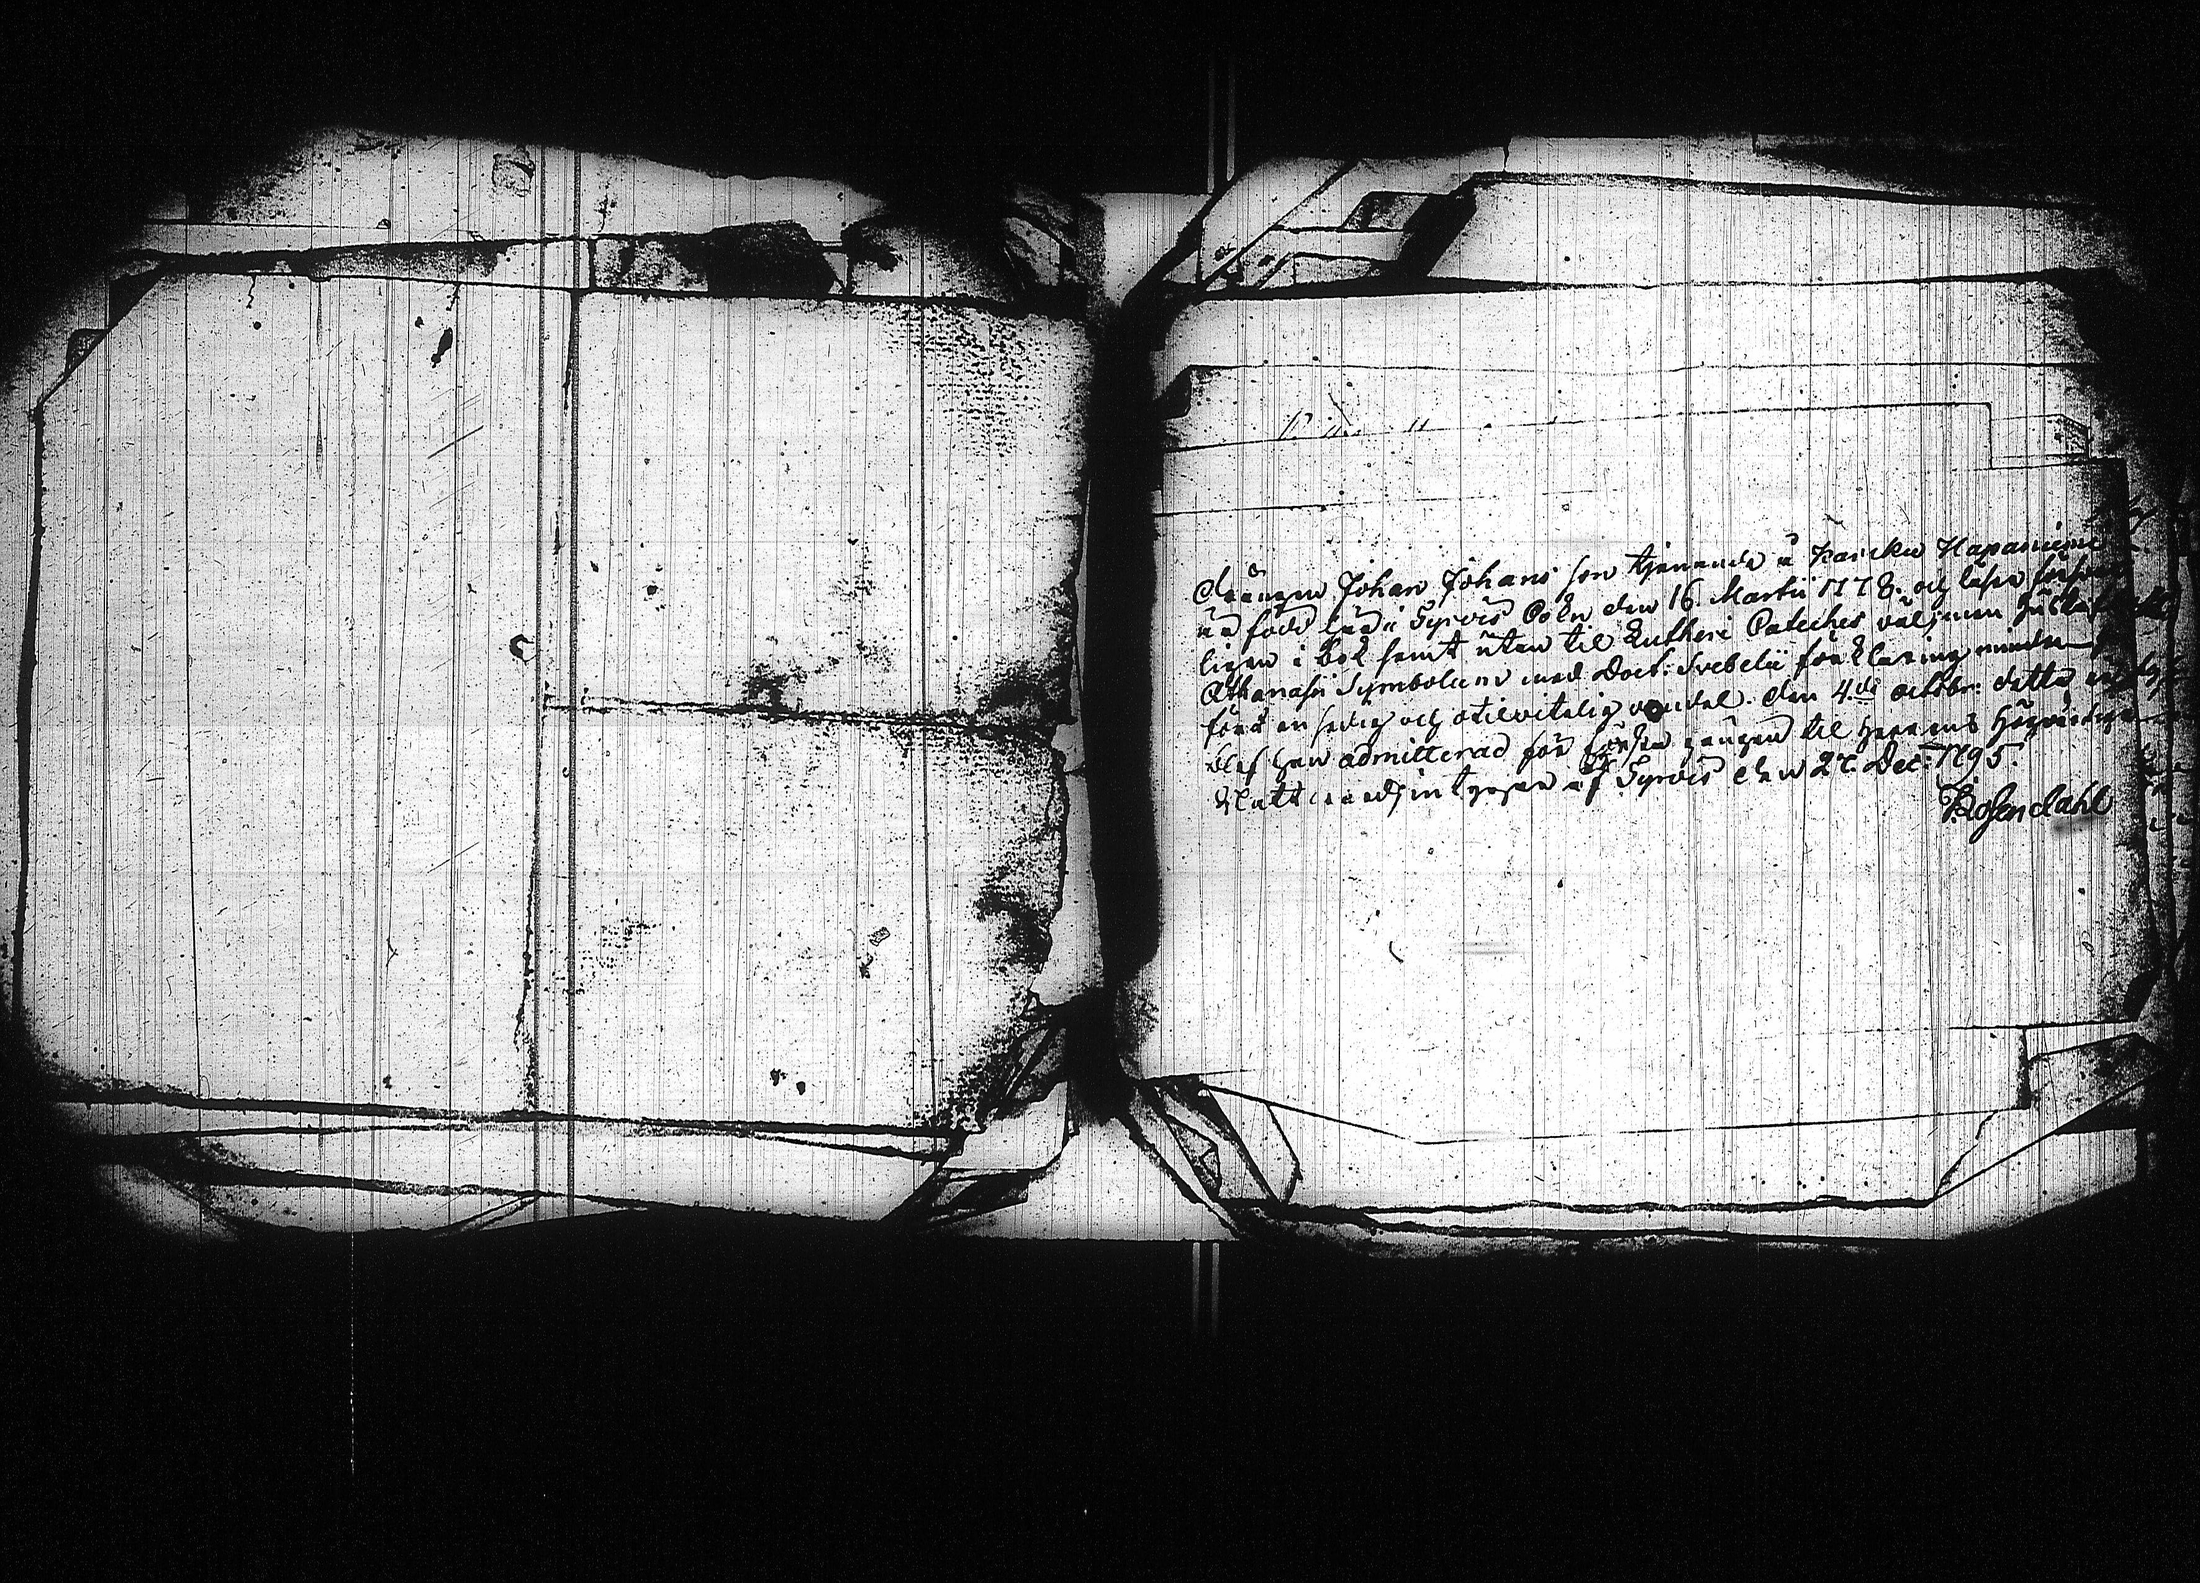 drängen Johan Johans son tjenande å Karsku Hapaniemi
är född här i Sysvis Sokn den 16. Martii 1778. och läser försvar
ligen i bok samt utan til Lutheri Cateches väl, men
Athanasii Symbolum med Doct: Svebelii förklaring mindre
fört en sedig och otilvitelig vandel. den 4.de octobr. detta
blef han admitterad för första gången til Herrens Högvärdiga
Natt intygar af Sysvis den 27. Dec: 1795.
Rosendahl